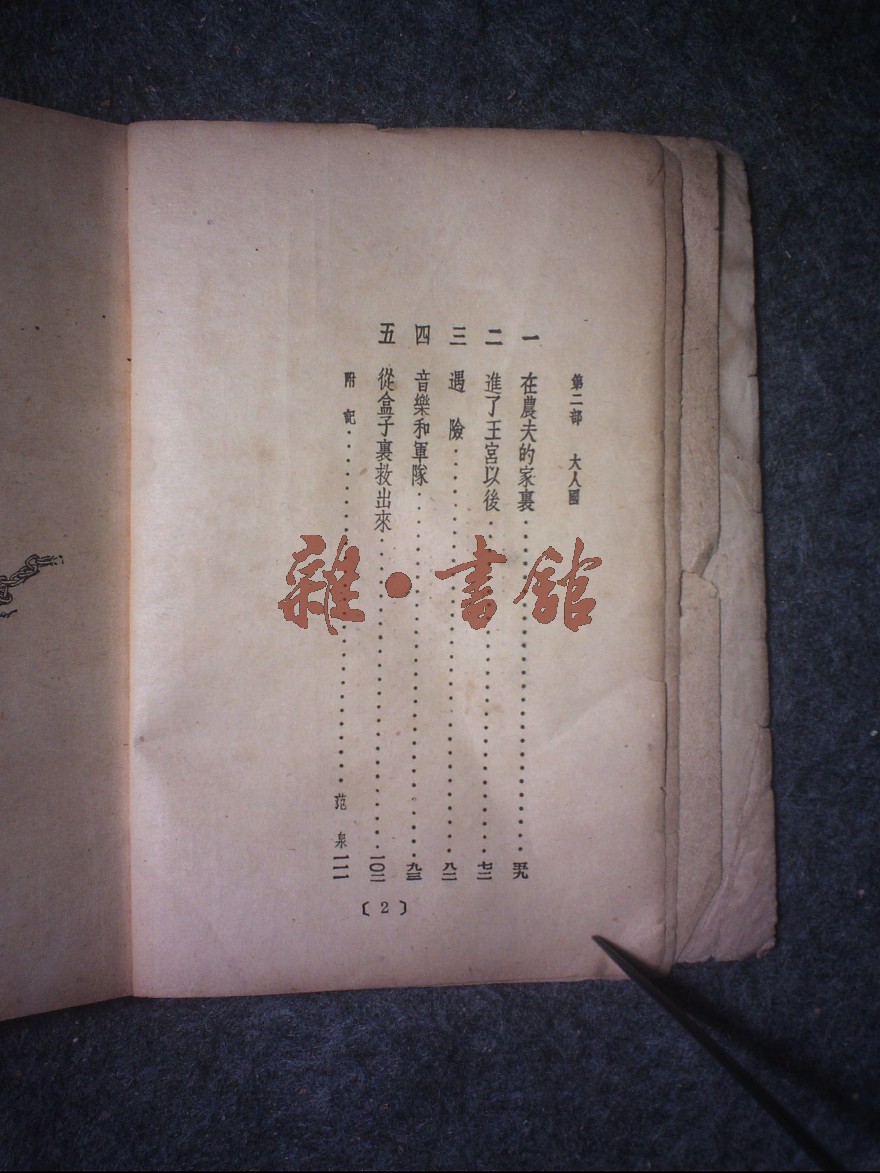 第二部　大人國
一　在農夫的家裏⋯⋯⋯⋯⋯⋯⋯⋯五九
二　進了王宮以後⋯⋯⋯⋯⋯⋯⋯⋯七二
三　遇　險⋯⋯⋯⋯⋯⋯⋯⋯八二
四　音樂和軍隊⋯⋯⋯⋯⋯⋯⋯⋯九三
五　從盒子裏救出來⋯⋯⋯⋯⋯⋯⋯⋯一〇二
附　記⋯⋯⋯⋯⋯⋯⋯⋯范　泉　一一一
〔2〕
雜·書館